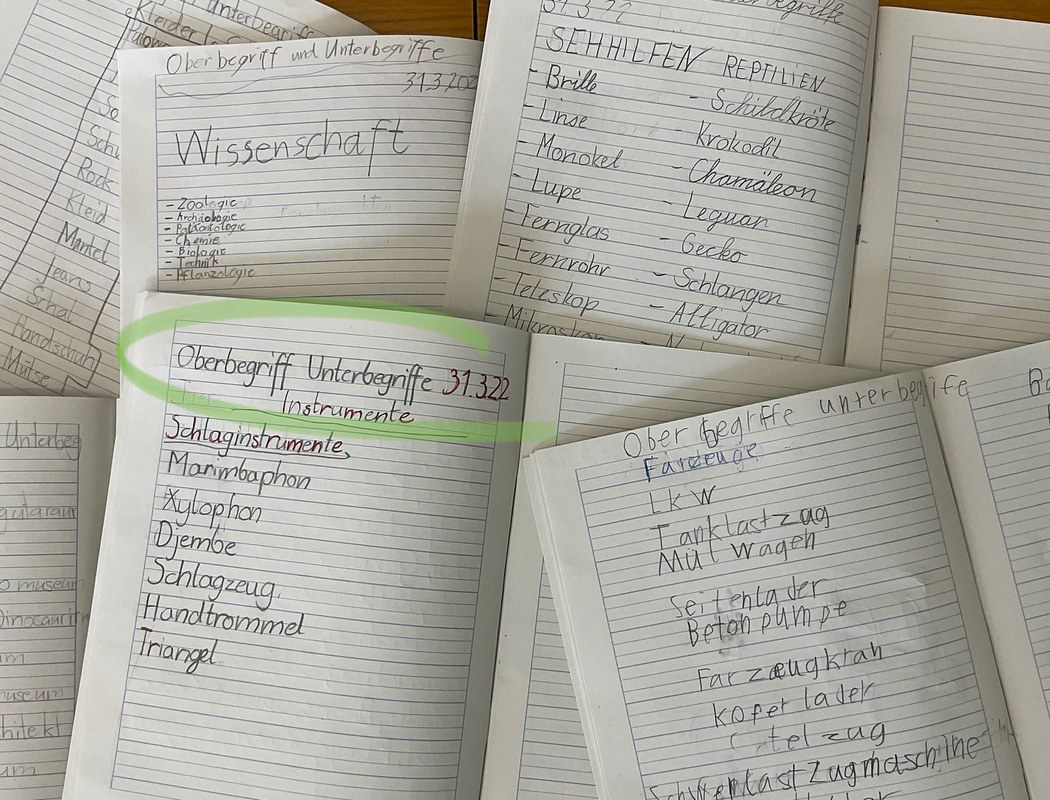 Unterbegriffe
Kleider
Schu
Rock
Kleid
Mantel
Jeans
Schal
Handschuh
Mütse
Oberbegriff und Unterbegriffe
31.3.202
Wissenschaft
- Zoologie
- Archäologie
- Paläontologie
- Chemie
- Biologie
- Technik
- Pflanzologie
31.3.22
SEHHILFEN REPTILIEN
- Brille
- Linse
- Monokel
- Lupe
- Fernglas
- Fernrohr
- Teleskop
- Mikroskop
- Schildkröte
- Krokodil
- Chamäleon
- Leguan
- Gecko
- Schlangen
- Alligator
Oberbegriff Unterbegriffe 31.3.22
Instrumente
Schlaginstrumente,
Marimbaphon
Xylophon
Djembe
Schlagzeug.
Handtrommel
Triangel
Ober begriffe unterbegrife
Farzeuge
LKW
Tanklastzug
Mül wagen
Seitenlader
Beton pumpe
Farzeugkran
Kofer lader
telzug
Schwerlast Zugmaschine
Unterbeg
museum
Dinosaurier
useum
chitekt
um